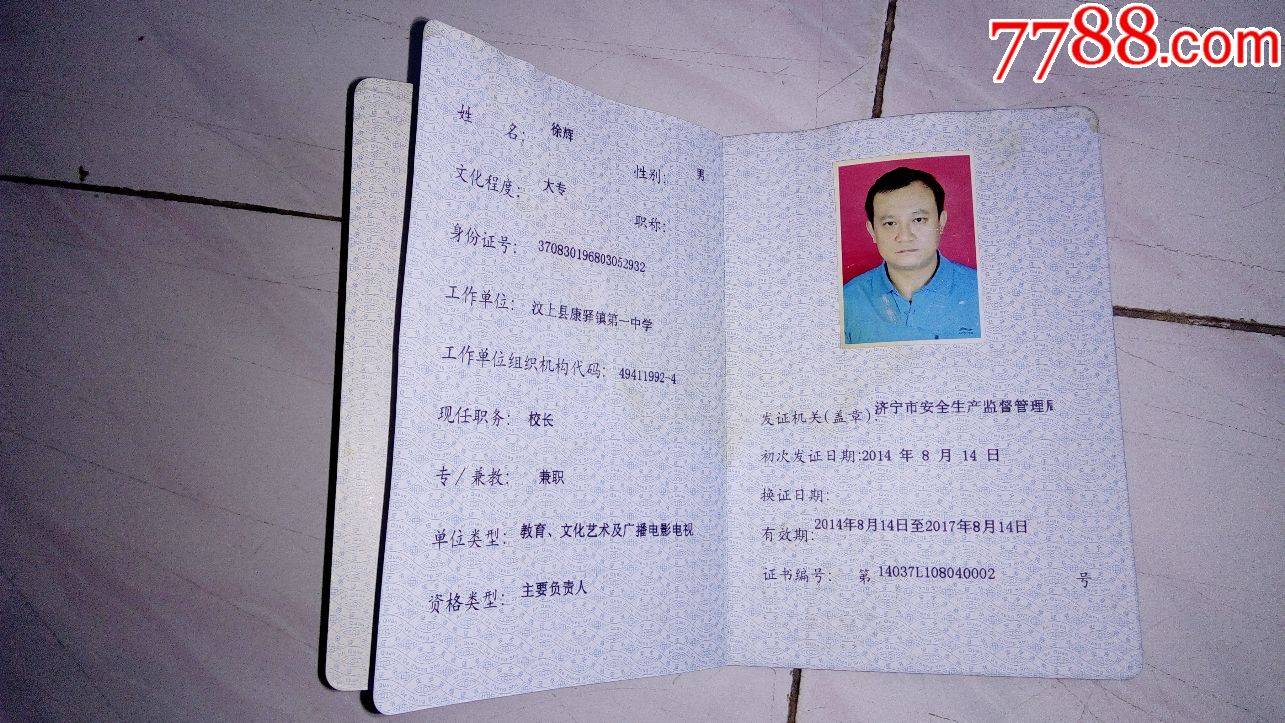 7788.com
姓 名: 徐辉
文化程度: 大专 性别: 男
职称:
身份证号: 370830196803052932
工作单位: 汶上县康驿镇第一中学
工作单位组织机构代码: 49411992-4
现任职务: 校长
专/兼教: 兼职
单位类型: 教育、文化艺术及广播电影电视
资格类型: 主要负责人
发证机关(盖章): 济宁市安全生产监督管理局
初次发证日期:2014 年 8 月 14 日
换证日期:
有效期: 2014年8月14日至2017年8月14日
证书编号: 第 14037L108040002 号